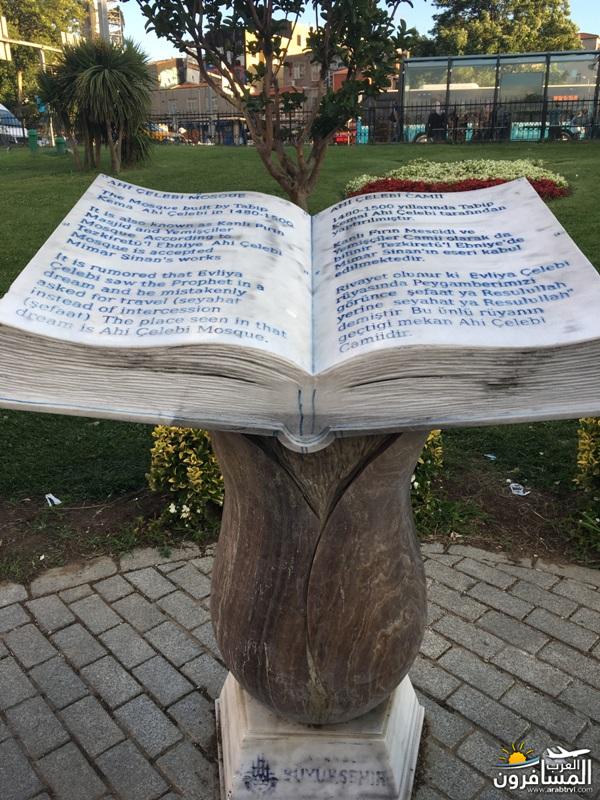 AHI ÇELEBI MOSQUE
The Mosque built by Tabip
Kemal Ahi Çelebi in 1480-1500
It is also known as Kanlı Fırın
Masjid and Yemişçiler
Mosque. According to
Tezkiretü'l Ebniye, Ahi Çelebi
Mosque is accepted
Mimar Sinan's works
It is rumored that Evliya
Çelebi saw the Prophet in a
dream and be mistakenly
asked for travel (seyahat)
instead of intercession
(şefaat) The place seen in that
dream is Ahi Çelebi Mosque.
AHI ÇELEBI CAMİİ
1480-1500 yılında Tabip
Kemal Ahi Çelebi tarafından
yapılmıştır.
Kanlı Fırın Mescidi ve
Yemişçiler Camii olarak da
bilinir. Tezkiretü'l Ebniye'de
Mimar Sinan'ın eseri kabul
edilmektedir.
Rivayet olunur ki Evliya Çelebi
rüyasında Peygamberimizi
görünce şefaat ya Resulullah
yerine seyahat ya Resulullah
demiştir Bu ünlü rüyanın
geçtiği mekan Ahi Çelebi
Camiidir.
BÜYÜKŞEHİR
العرب
المسافرون
www.arabtrvl.com